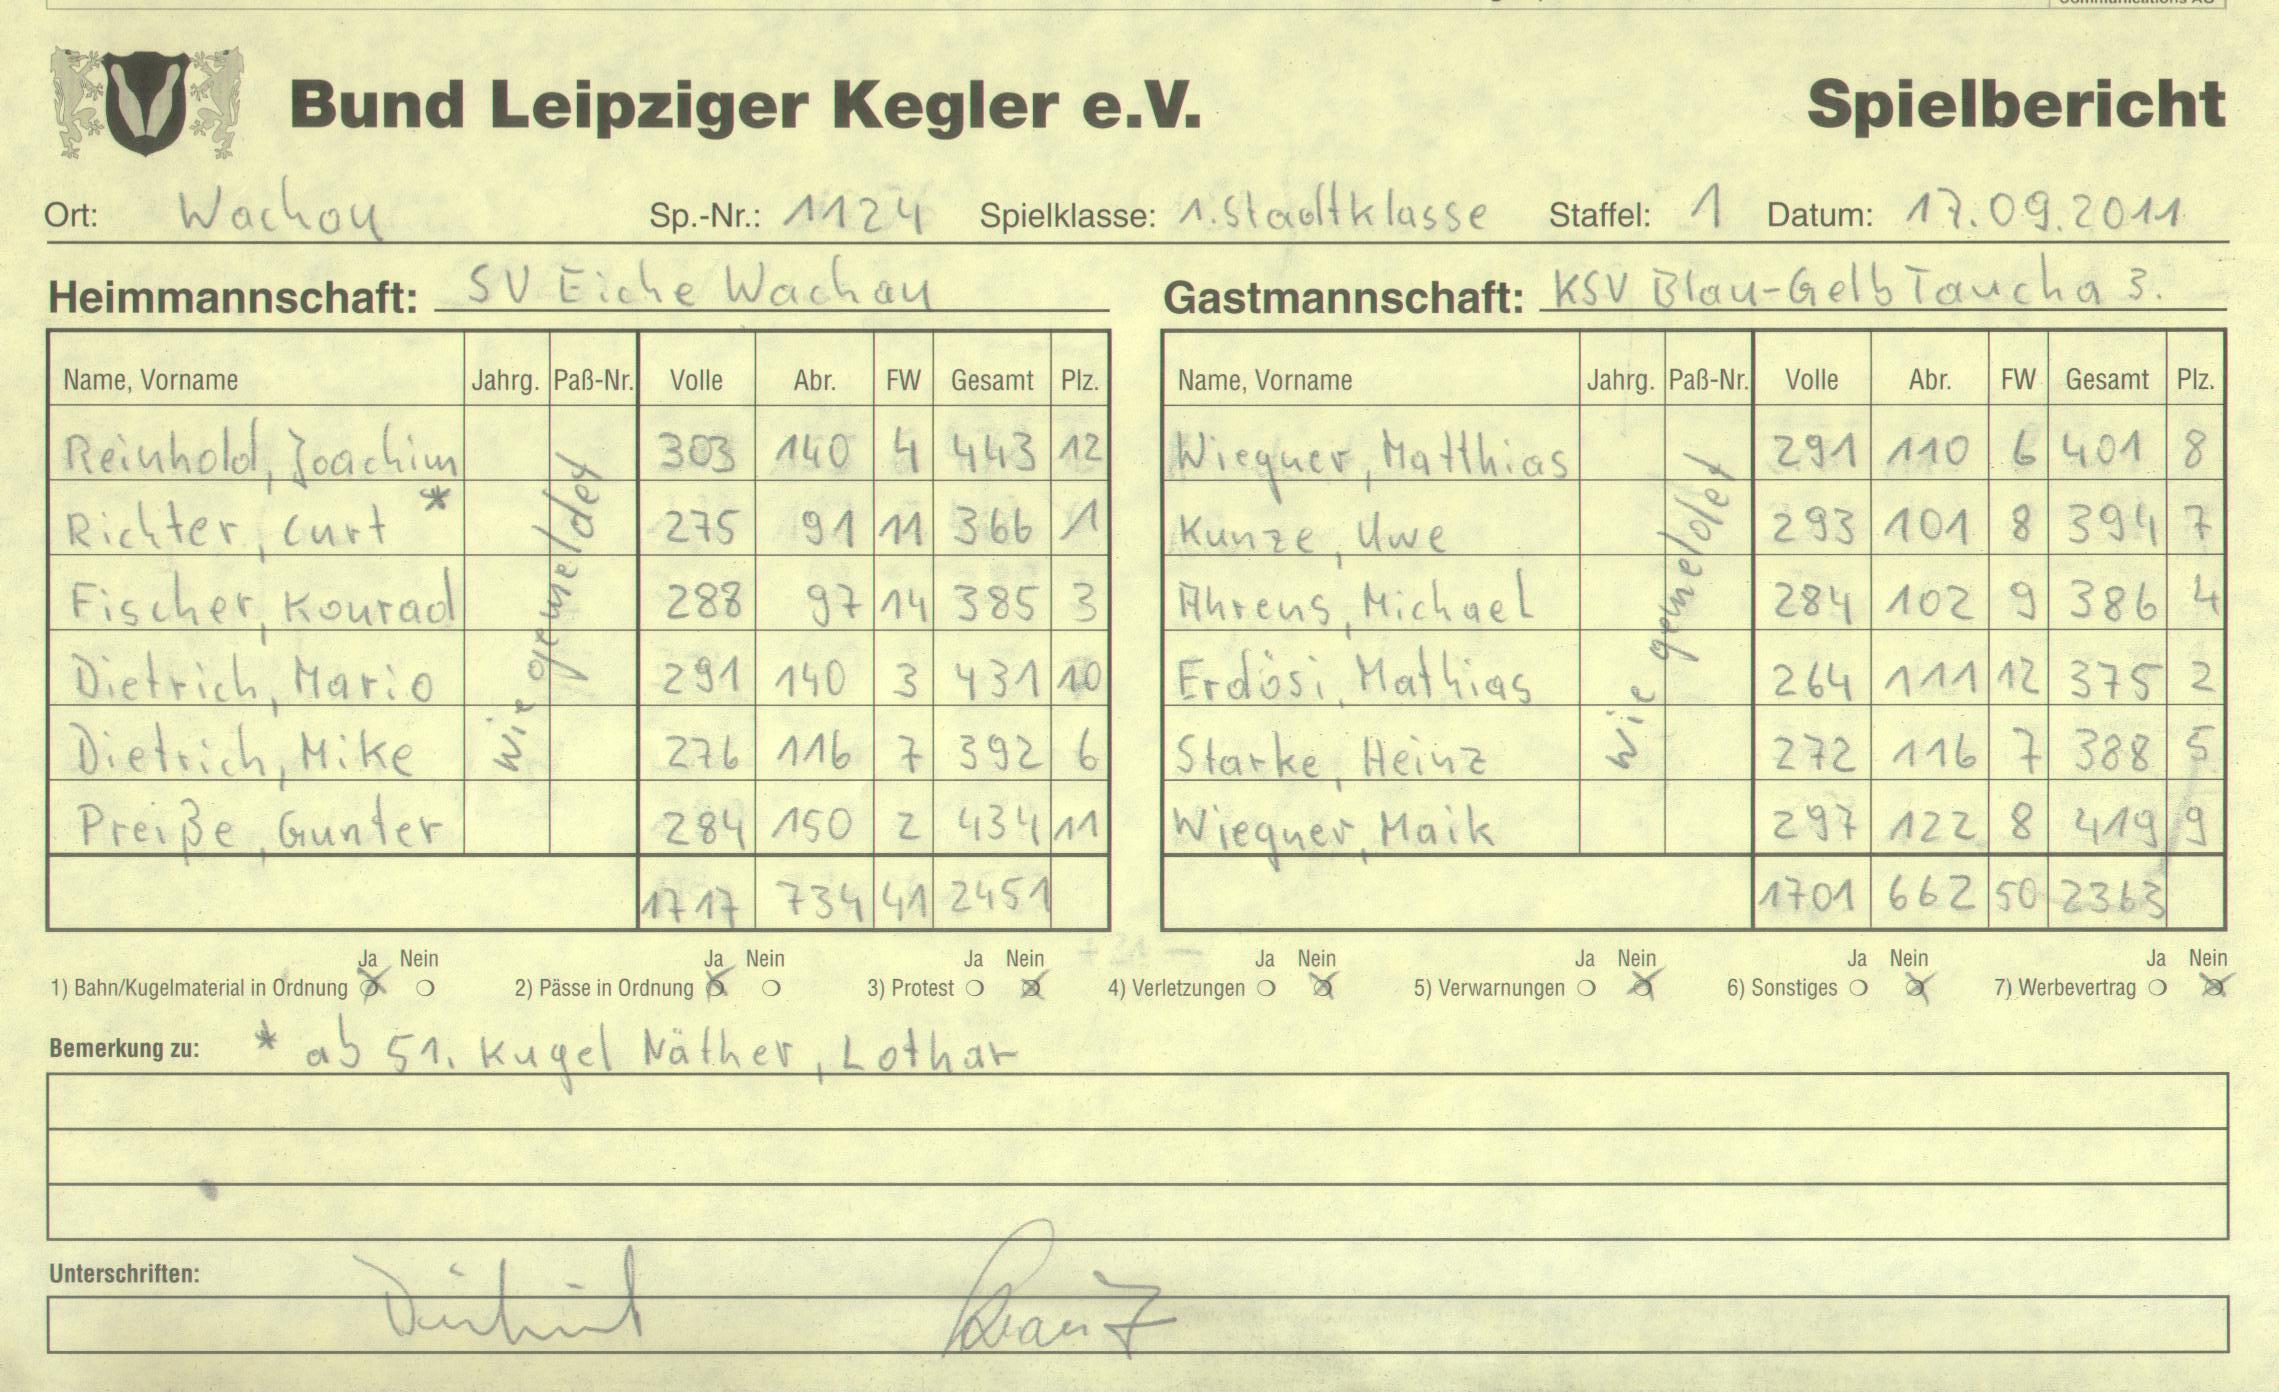 Communications AG
Bund Leipziger Kegler e.V. Spielbericht
Ort: Wachau Sp.-Nr.: 1124 Spielklasse: 1. Stadtklasse Staffel: 1 Datum: 17.09.2011
Heimmannschaft: SV Eiche Wachau Gastmannschaft: KSV Blau-Gelb Taucha 3.
Name, Vorname Jahrg. Paß-Nr. Volle Abr. FW Gesamt Plz. Name, Vorname Jahrg. Paß-Nr. Volle Abr. FW Gesamt Plz.
Reinhold, Joachim 303 140 4 443 12 Wiegner, Matthias 291 110 6 401 8
Richter, Curt * 275 91 11 366 1 Kunze, Uwe 293 101 8 394 7
Fischer, Konrad 288 97 14 385 3 Ahrens, Michael 284 102 9 386 4
Dietrich, Mario 291 140 3 431 10 Erdösi, Mathias 264 111 12 375 2
Dietrich, Mike 276 116 7 392 6 Starke, Heinz 272 116 7 388 5
Preiße, Gunter 284 150 2 434 11 Wiegner, Maik 297 122 8 419 9
wie gemeldet wie gemeldet
1717 734 41 2451 1701 662 50 2363
Ja Nein Ja Nein Ja Nein Ja Nein Ja Nein Ja Nein Ja Nein
1) Bahn/Kugelmaterial in Ordnung 2) Pässe in Ordnung 3) Protest 4) Verletzungen 5) Verwarnungen 6) Sonstiges 7) Werbevertrag
Bemerkung zu: * ab 51. Kugel Näther, Lothar
Unterschriften: